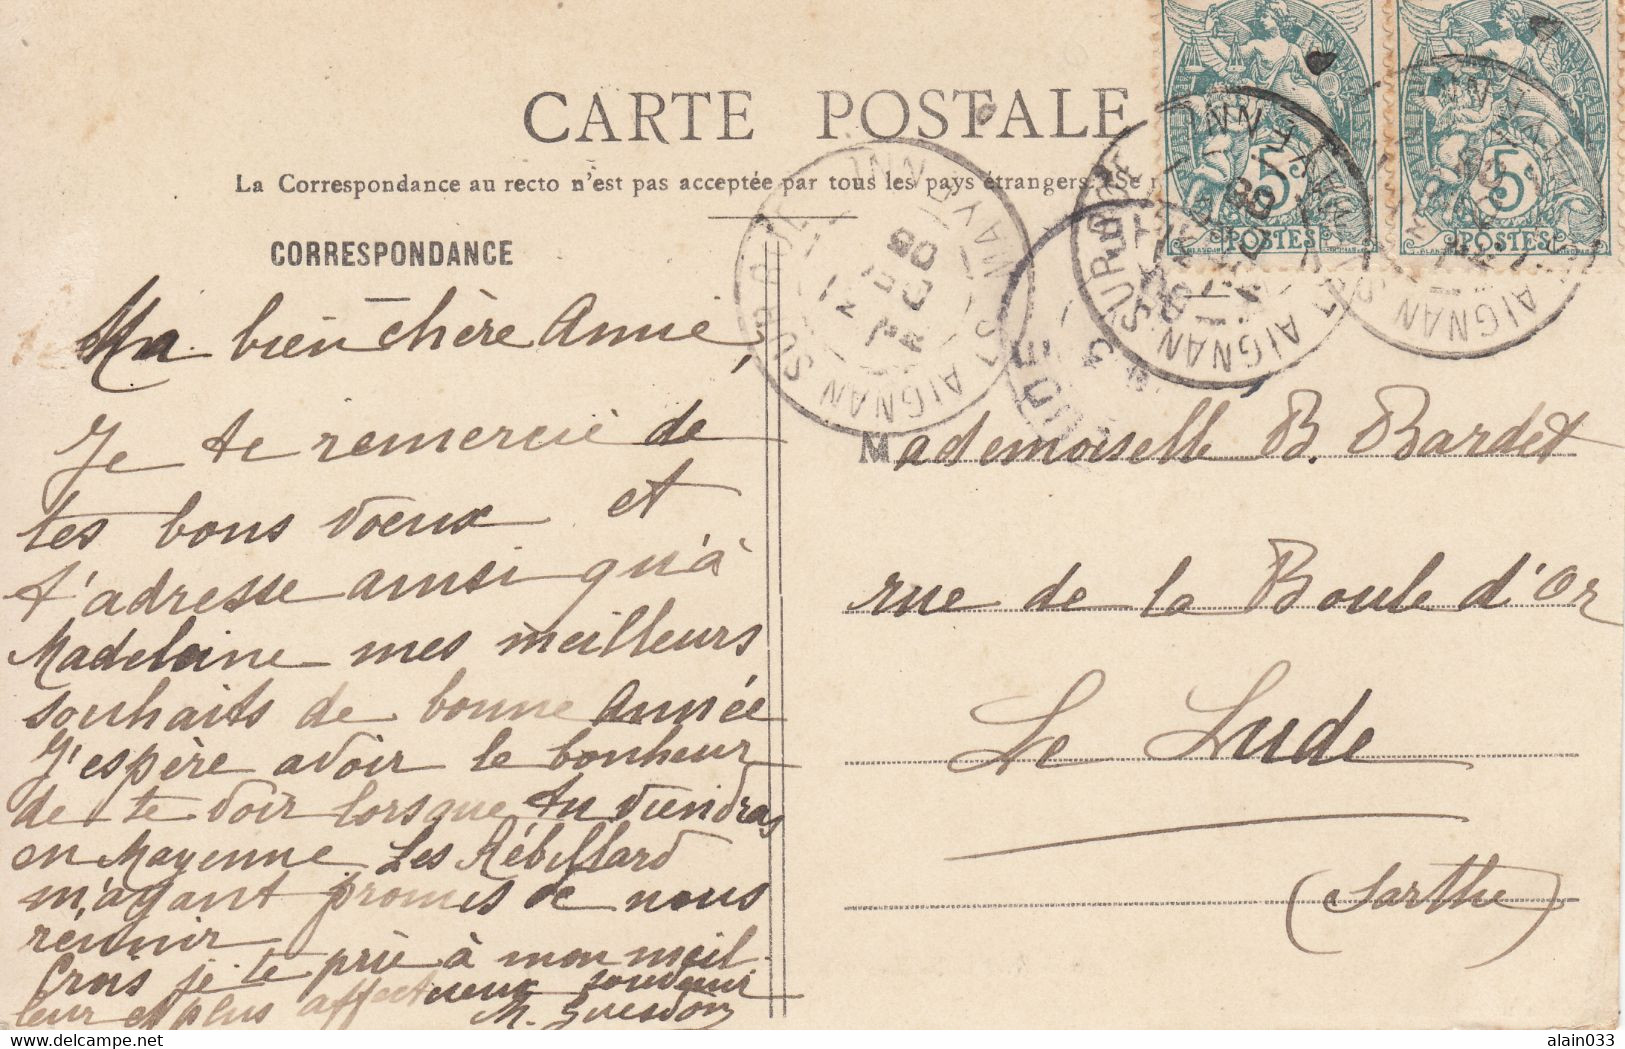 CARTE POSTALE
La Correspondance au recto n'est pas acceptée par tous les pays étrangers. (Se
CORRESPONDANCE
Ma bien chère Annie,
Je te remercie de
tes bons voeux et
t'adresse ainsi qu'à
Madeleine mes meilleurs
souhaits de bonne Année
J'espère avoir le bonheur
de te voir lorsque tu viendras
en Mayenne Les Rébillard
m'ayant promis de nous
réunir
Crois je te prie à mon meil
leur et plus affectueux souvenir
M. Guesdon
Mademoiselle B. Bardet
rue de la Boule d'Or
Le Lude
(Sarthe)
5
POSTES
5
POSTES
ST AIGNAN SUR ROE MAYENNE
08
ST AIGNAN SUR ROE MAYENNE
08
AIGNAN S
LUDE
alain033